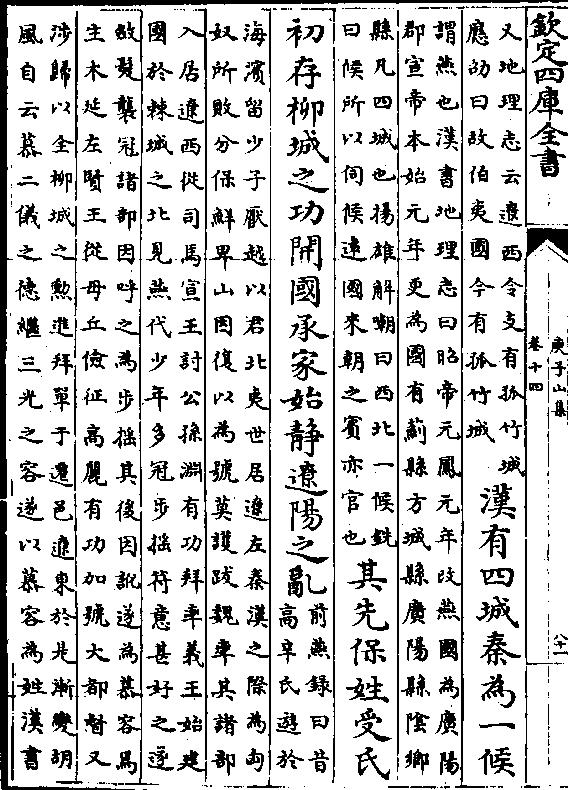 欽定四庫全書
庾子山集
卷十四
八十一
又地理志云遼西令支有孤竹城
應劭曰故伯夷國今有孤竹城
漢有四城秦為一候
謂燕也漢書地理志曰昭帝元鳳元年改燕國為廣陽
郡宣帝本始元年更為國有薊縣方城縣廣陽縣陰鄉
縣凡四城也揚雄解嘲曰西北一候銑
曰候所以伺候遠國來朝之賓亦官也
其先保姓受氏
初存柳城之功開國承家始靜遼陽之亂
前燕錄曰昔
高辛氏遊於
海濱留少子厭越以君北夷世居遼左秦漢之際為匈
奴所敗分保鮮卑山因復以為號莫護跋魏率其諸部
入居遼西從司馬宣王討公孫淵有功拜率義王始建
國於棘城之北見燕代少年多冠步搖符意甚好之遂
斂髮襲冠諸部因呼之為步搖其後因訛遂為慕容焉
主木延左賢王從母丘儉征高麗有功加號大都督又
涉歸以全柳城之勲進拜單于遷邑遼東於是漸變胡
風自云慕二儀之德繼三光之容遂以慕容為姓漢書